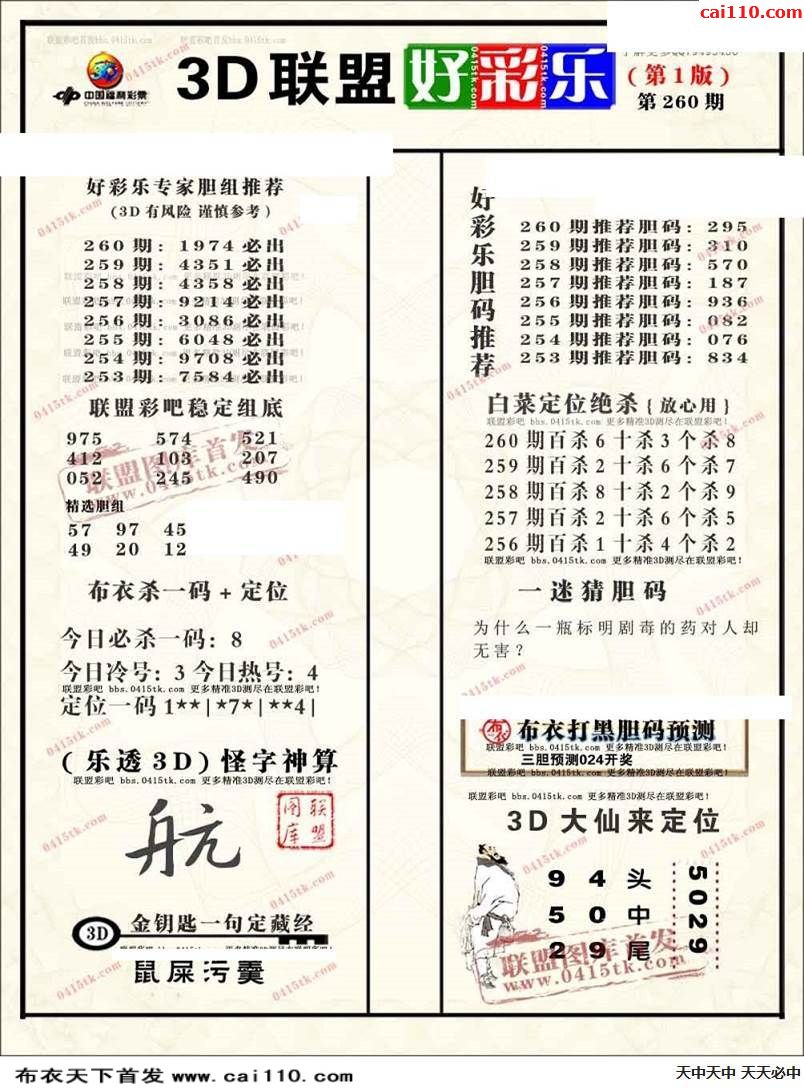 cai110.com
联盟彩吧首发bbs.0415tk.com 联盟彩吧首发bbs.0415tk.com
中国福利彩票
CHINA WELFARE LOTTERY
3D联盟好彩乐
(第1版)
第260期
好彩乐专家胆组推荐
(3D有风险 谨慎参考)
260期: 1974必出
259期: 4351必出
258期: 4358必出
257期: 9214必出
256期: 3086必出
255期: 6048必出
254期: 9708必出
253期: 7584必出
联盟彩吧稳定组底
975 574 521
412 103 207
052 245 490
联盟图库首发
www.0415tk.com
精选胆组
57 97 45
49 20 12
布衣杀一码+定位
今日必杀一码: 8
今日冷号: 3 今日热号: 4
联盟彩吧 bbs.0415tk.com 更多精准3D测尽在联盟彩吧!
定位一码 1**|*7*|**4|
(乐透3D)怪字神算
联盟彩吧 bbs.0415tk.com 更多精准3D测尽在联盟彩吧!
航
联盟图库
3D 金钥匙一句定藏经
鼠屎污羹
好彩乐胆码推荐
260期推荐胆码: 295
259期推荐胆码: 310
258期推荐胆码: 570
257期推荐胆码: 187
256期推荐胆码: 936
255期推荐胆码: 082
254期推荐胆码: 076
253期推荐胆码: 834
白菜定位绝杀{放心用}
联盟彩吧 bbs.0415tk.com 更多精准3D测尽在联盟彩吧!
260期百杀6十杀3个杀8
259期百杀2十杀6个杀7
258期百杀8十杀2个杀9
257期百杀2十杀6个杀5
256期百杀1十杀4个杀2
联盟彩吧 bbs.0415tk.com 更多精准3D测尽在联盟彩吧!
一迷猜胆码
为什么一瓶标明剧毒的药对人却
无害?
布衣 布衣打黑胆码预测
联盟彩吧 bbs.0415tk.com 更多精准3D测尽在联盟彩吧!
三胆预测024开奖
联盟彩吧 bbs.0415tk.com 更多精准3D测尽在联盟彩吧!
联盟彩吧 bbs.0415tk.com 更多精准3D测尽在联盟彩吧!
3D大仙来定位
9 4 头
5 0 中
2 9 尾
5029
联盟图库首发
www.0415tk.com
布衣天下首发 www.cai110.com
天中天中 天天必中